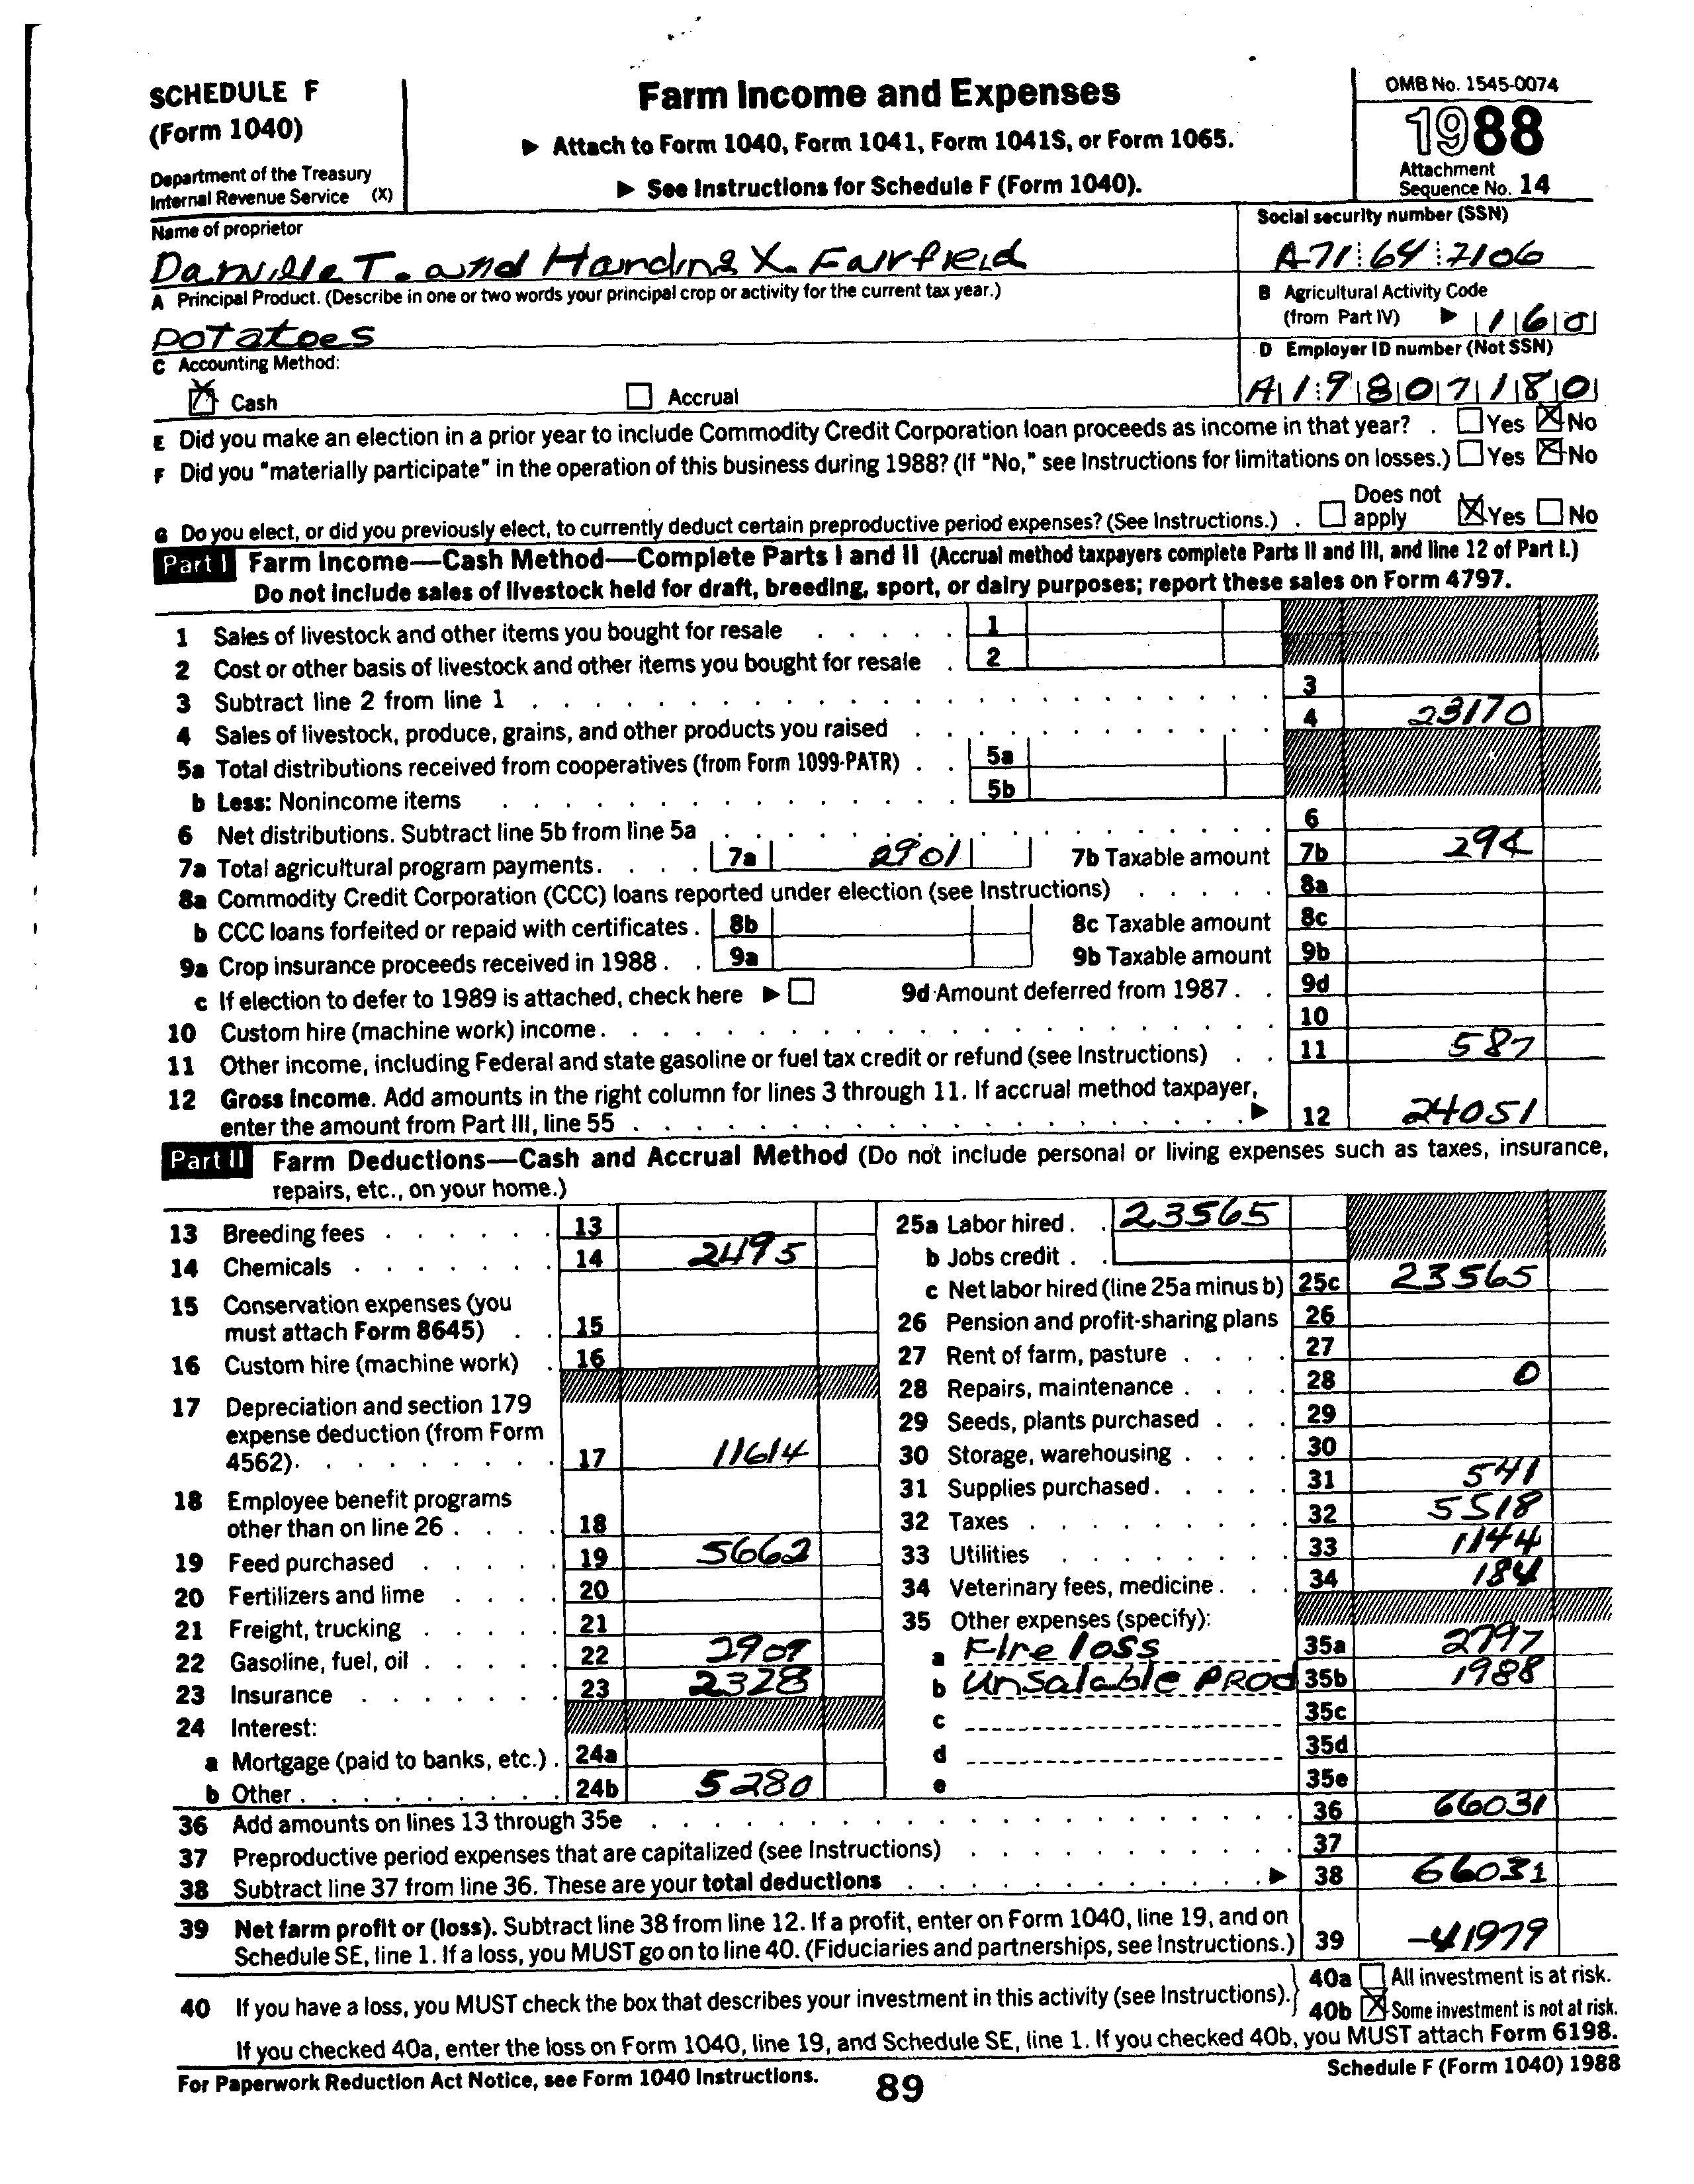 SCHEDULE F
(Form 1040)
Department of the Treasury
Internal Revenue Service (X)
Farm Income and Expenses
▶ Attach to Form 1040, Form 1041, Form 1041S, or Form 1065.
▶ See Instructions for Schedule F (Form 1040).
OMB No. 1545-0074
1988
Attachment
Sequence No. 14
Name of proprietor
Danville T. and Harding X. Fairfield
Social security number (SSN)
A71 64 7106
A Principal Product. (Describe in one or two words your principal crop or activity for the current tax year.)
potatoes
B Agricultural Activity Code
(from Part IV) ▶ 160
C Accounting Method:
D Employer ID number (Not SSN)
☒ Cash ☐ Accrual
A19807180
E Did you make an election in a prior year to include Commodity Credit Corporation loan proceeds as income in that year? . ☐ Yes ☒ No
F Did you "materially participate" in the operation of this business during 1988? (If "No," see Instructions for limitations on losses.) ☐ Yes ☒ No
G Do you elect, or did you previously elect, to currently deduct certain preproductive period expenses? (See Instructions.) . ☐ Does not apply ☒ Yes ☐ No
Part I Farm Income—Cash Method—Complete Parts I and II (Accrual method taxpayers complete Parts II and III, and line 12 of Part I.)
Do not include sales of livestock held for draft, breeding, sport, or dairy purposes; report these sales on Form 4797.
1 Sales of livestock and other items you bought for resale . . . . . 1
2 Cost or other basis of livestock and other items you bought for resale . 2
3 Subtract line 2 from line 1 . . . 3
4 Sales of livestock, produce, grains, and other products you raised . . . 4 23170
5a Total distributions received from cooperatives (from Form 1099-PATR) . . 5a
b Less: Nonincome items . . . 5b
6 Net distributions. Subtract line 5b from line 5a . . . 6
7a Total agricultural program payments. . . . 7a 2901 7b Taxable amount 7b 294
8a Commodity Credit Corporation (CCC) loans reported under election (see Instructions) . . . . . 8a
b CCC loans forfeited or repaid with certificates . 8b 8c Taxable amount 8c
9a Crop insurance proceeds received in 1988 . . 9a 9b Taxable amount 9b
c If election to defer to 1989 is attached, check here ▶ ☐ 9d Amount deferred from 1987 . . 9d
10 Custom hire (machine work) income. . . . 10
11 Other income, including Federal and state gasoline or fuel tax credit or refund (see Instructions) . . 11 587
12 Gross Income. Add amounts in the right column for lines 3 through 11. If accrual method taxpayer,
enter the amount from Part III, line 55 . . . ▶ 12 24051
Part II Farm Deductions—Cash and Accrual Method (Do not include personal or living expenses such as taxes, insurance,
repairs, etc., on your home.)
13 Breeding fees . . . . . . 13
14 Chemicals . . . . . . . 14 2495
15 Conservation expenses (you
must attach Form 8645) . . 15
16 Custom hire (machine work) . 16
17 Depreciation and section 179
expense deduction (from Form
4562). . . . . . . . . 17 11614
18 Employee benefit programs
other than on line 26 . . . . 18
19 Feed purchased . . . . . 19 5662
20 Fertilizers and lime . . . . 20
21 Freight, trucking . . . . . 21
22 Gasoline, fuel, oil . . . . . 22 2909
23 Insurance . . . . . . . 23 2328
24 Interest:
a Mortgage (paid to banks, etc.) . 24a
b Other . . . . . . . . . 24b 5280
25a Labor hired . . 23565
b Jobs credit . .
c Net labor hired (line 25a minus b) 25c 23565
26 Pension and profit-sharing plans 26
27 Rent of farm, pasture . . . . 27
28 Repairs, maintenance . . . . 28 0
29 Seeds, plants purchased . . . 29
30 Storage, warehousing . . . . 30
31 Supplies purchased . . . . . 31 541
32 Taxes . . . . . . . . . 32 5518
33 Utilities . . . . . . . . 33 1144
34 Veterinary fees, medicine . . . 34 184
35 Other expenses (specify):
a Fire loss 35a 2797
b Unsalable PROD 35b 1988
c 35c
d 35d
e 35e
36 Add amounts on lines 13 through 35e . . . 36 66031
37 Preproductive period expenses that are capitalized (see Instructions) . . . 37
38 Subtract line 37 from line 36. These are your total deductions . . . ▶ 38 66031
39 Net farm profit or (loss). Subtract line 38 from line 12. If a profit, enter on Form 1040, line 19, and on
Schedule SE, line 1. If a loss, you MUST go on to line 40. (Fiduciaries and partnerships, see Instructions.) 39 -41979
40 If you have a loss, you MUST check the box that describes your investment in this activity (see Instructions).
40a ☐ All investment is at risk.
40b ☒ Some investment is not at risk.
If you checked 40a, enter the loss on Form 1040, line 19, and Schedule SE, line 1. If you checked 40b, you MUST attach Form 6198.
For Paperwork Reduction Act Notice, see Form 1040 Instructions.
Schedule F (Form 1040) 1988
89